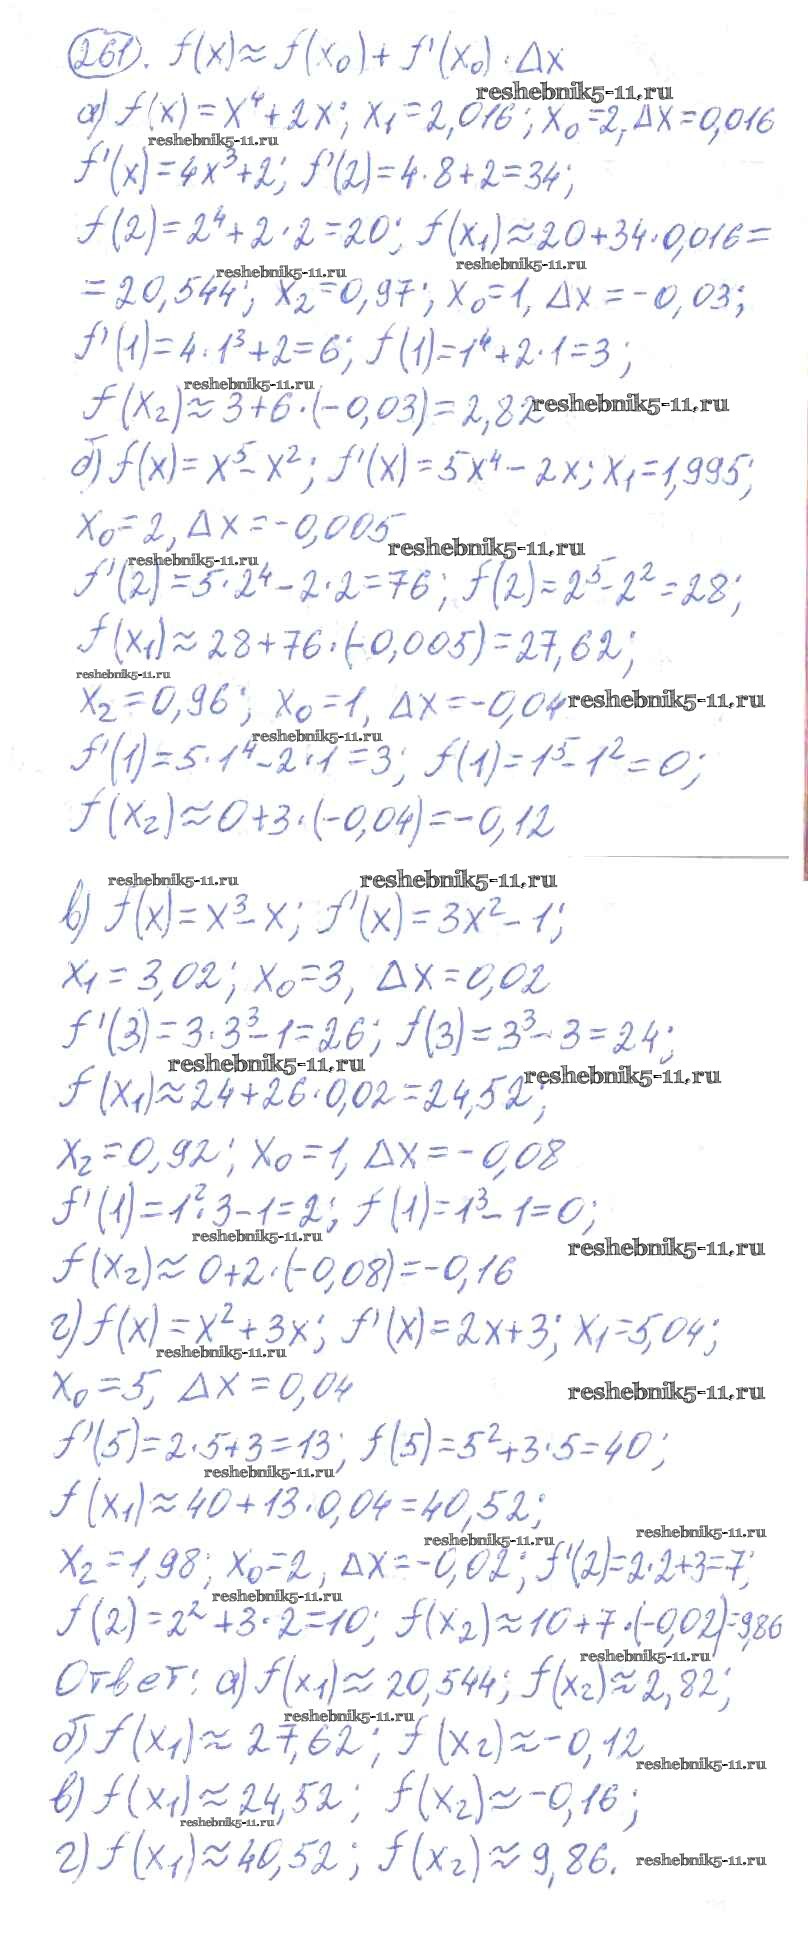 261. f(x)≈f(x₀)+f'(x₀)·Δx
reshebnik5-11.ru
а) f(x)=x⁴+2x; x₁=2,016; x₀=2, Δx=0,016
reshebnik5-11.ru
f'(x)=4x³+2; f'(2)=4·8+2=34;
f(2)=2⁴+2·2=20; f(x₁)≈20+34·0,016=
reshebnik5-11.ru reshebnik5-11.ru
=20,544; x₂=0,97; x₀=1, Δx=-0,03;
f'(1)=4·1³+2=6; f(1)=1⁴+2·1=3;
reshebnik5-11.ru
f(x₂)≈3+6·(-0,03)=2,82 reshebnik5-11.ru
б) f(x)=x⁵-x²; f'(x)=5x⁴-2x; x₁=1,995;
x₀=2, Δx=-0,005
reshebnik5-11.ru
reshebnik5-11.ru
f'(2)=5·2⁴-2·2=76; f(2)=2⁵-2²=28;
f(x₁)≈28+76·(-0,005)=27,62;
reshebnik5-11.ru
x₂=0,96; x₀=1, Δx=-0,04 reshebnik5-11.ru
reshebnik5-11.ru
f'(1)=5·1⁴-2·1=3; f(1)=1⁵-1²=0;
f(x₂)≈0+3·(-0,04)=-0,12
reshebnik5-11.ru reshebnik5-11.ru
в) f(x)=x³-x; f'(x)=3x²-1;
x₁=3,02; x₀=3, Δx=0,02
f'(3)=3·3³-1=26; f(3)=3³-3=24;
reshebnik5-11.ru reshebnik5-11.ru
f(x₁)≈24+26·0,02=24,52;
x₂=0,92; x₀=1, Δx=-0,08
f'(1)=1²·3-1=2; f(1)=1³-1=0;
reshebnik5-11.ru reshebnik5-11.ru
f(x₂)≈0+2·(-0,08)=-0,16
г) f(x)=x²+3x; f'(x)=2x+3; x₁=5,04;
reshebnik5-11.ru
x₀=5, Δx=0,04 reshebnik5-11.ru
f'(5)=2·5+3=13; f(5)=5²+3·5=40;
reshebnik5-11.ru
f(x₁)≈40+13·0,04=40,52;
reshebnik5-11.ru reshebnik5-11.ru
x₂=1,98; x₀=2, Δx=-0,02; f'(2)=2·2+3=7;
reshebnik5-11.ru
f(2)=2²+3·2=10; f(x₂)≈10+7·(-0,02)=9,86
reshebnik5-11.ru
Ответ: а) f(x₁)≈20,544; f(x₂)≈2,82;
reshebnik5-11.ru
б) f(x₁)≈27,62; f(x₂)≈-0,12
reshebnik5-11.ru
в) f(x₁)≈24,52; f(x₂)≈-0,16;
reshebnik5-11.ru
г) f(x₁)≈40,52; f(x₂)≈9,86. reshebnik5-11.ru